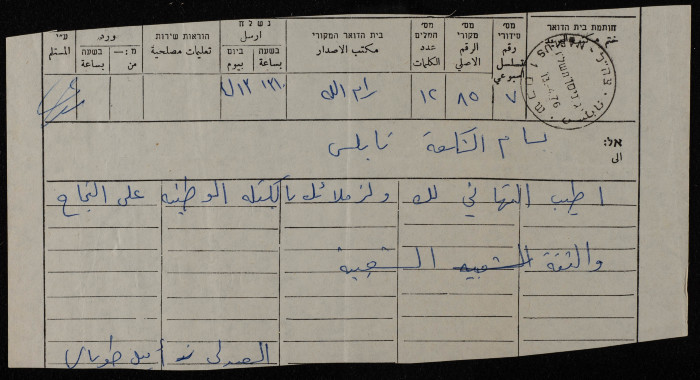 חותמת בית הדואר
ختم مكتب
מס׳ סידורי
رقم تسلسل اسبوعي
מס׳ מקורי
الرقم الاصلي
מס׳ המלים
عدد الكلمات
בית הדואר המקורי
مكتب الاصدار
נשלח
ارسل
בשעה
بساعة
ביום
بيوم
הוראות שירות
تعليمات مصلحية
בשעה
بساعة
מ:—
من
ע״י
المستلم
13.4.76
٧
٨٥
١٢
رام الله
١٣١٠
אל:
الى
بسام الشكعة نابلس
اطيب التهاني لك ولزملائك بالكتلة الوطنية على النجاح
والثقة الشعبية الشعبية
الصيدلي